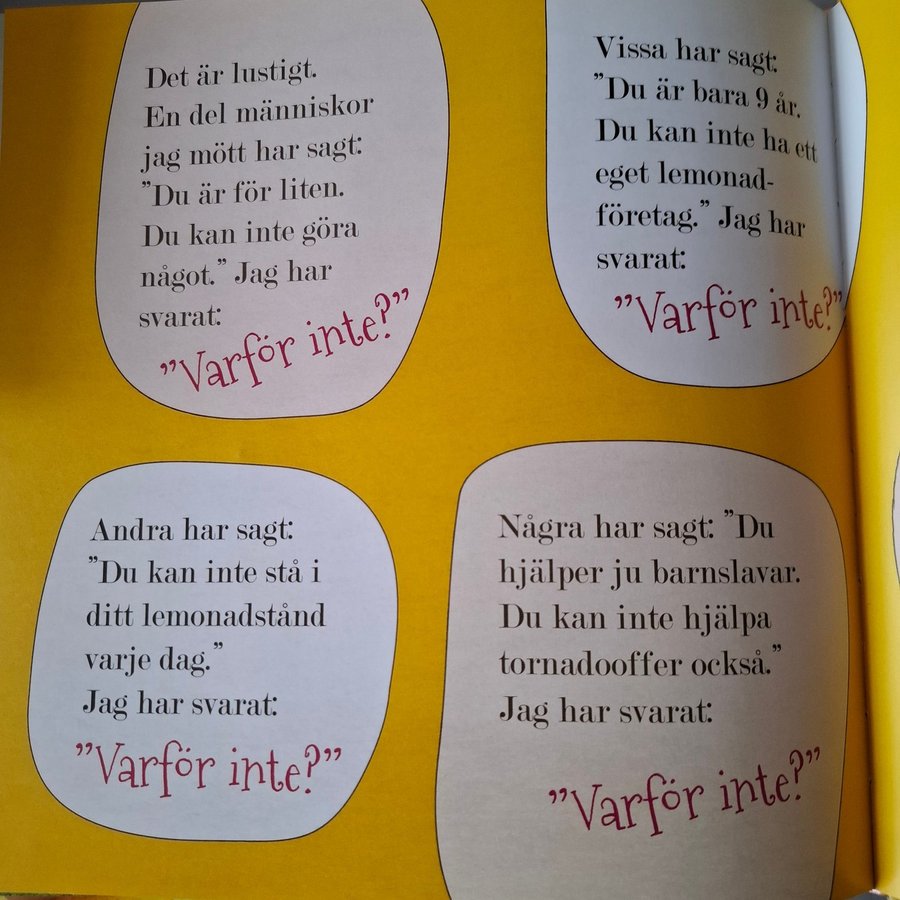 Det är lustigt.
En del människor
jag mött har sagt:
”Du är för liten.
Du kan inte göra
något.” Jag har
svarat:
”Varför inte?”
Vissa har sagt:
”Du är bara 9 år.
Du kan inte ha ett
eget lemonad-
företag.” Jag har
svarat:
”Varför inte?”
Andra har sagt:
”Du kan inte stå i
ditt lemonadstånd
varje dag.”
Jag har svarat:
”Varför inte?”
Några har sagt: ”Du
hjälper ju barnslavar.
Du kan inte hjälpa
tornadooffer också.”
Jag har svarat:
”Varför inte?”